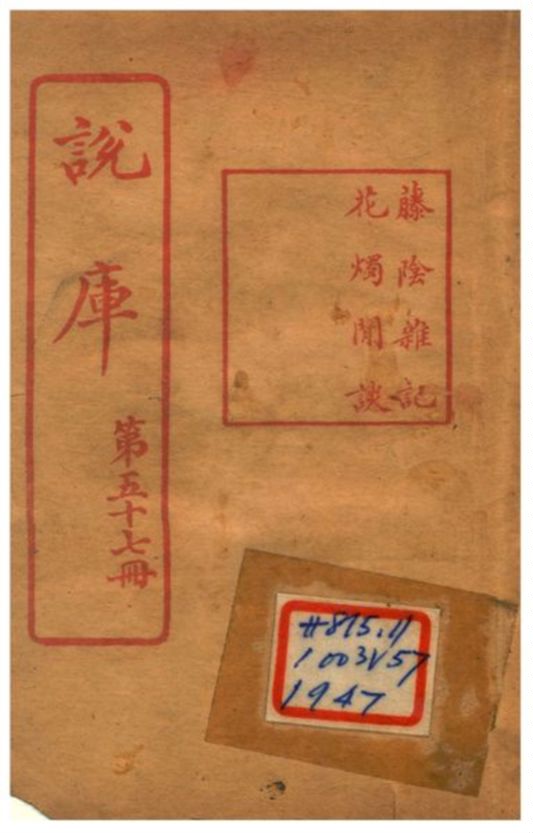 藤陰雜記
花燭閒談
說庫
第五十七冊
#815.11
1003V57
1947